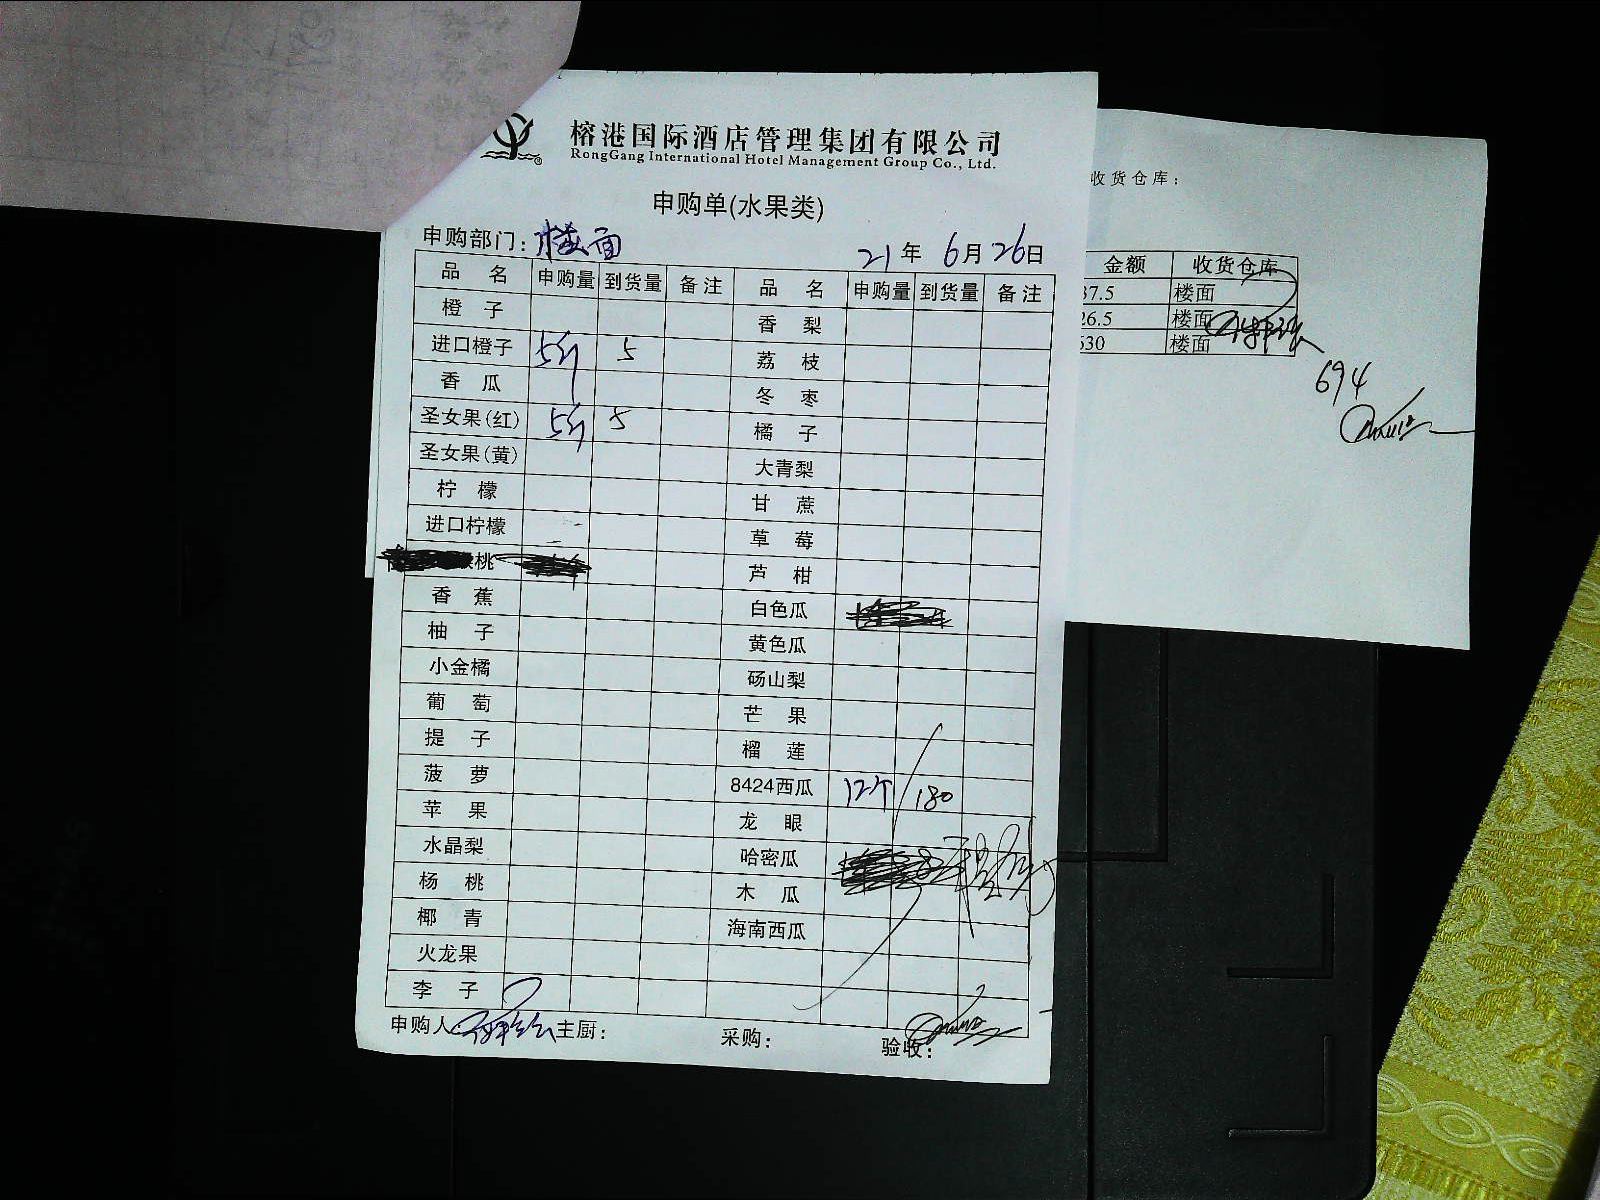 榕港国际酒店管理集团有限公司
RongGang International Hotel Management Group Co., Ltd.
申购单(水果类)
申购部门: 楼面 21年 6月 26日
品 名 申购量 到货量 备注 品 名 申购量 到货量 备注
橙 子 香 梨
进口橙子 5斤 5 荔 枝
香 瓜 冬 枣
圣女果(红) 5斤 5 橘 子
圣女果(黄) 大青梨
柠 檬 甘 蔗
进口柠檬 草 莓
桃 芦 柑
香 蕉 白色瓜
柚 子 黄色瓜
小金橘 砀山梨
葡 萄 芒 果
提 子 榴 莲
菠 萝 8424西瓜 12个 180
苹 果 龙 眼
水晶梨 哈密瓜
杨 桃 木 瓜
椰 青 海南西瓜
火龙果
李 子
申购人: 主厨: 采购: 验收:
收货仓库:
金额 收货仓库
37.5 楼面
26.5 楼面
530 楼面
694